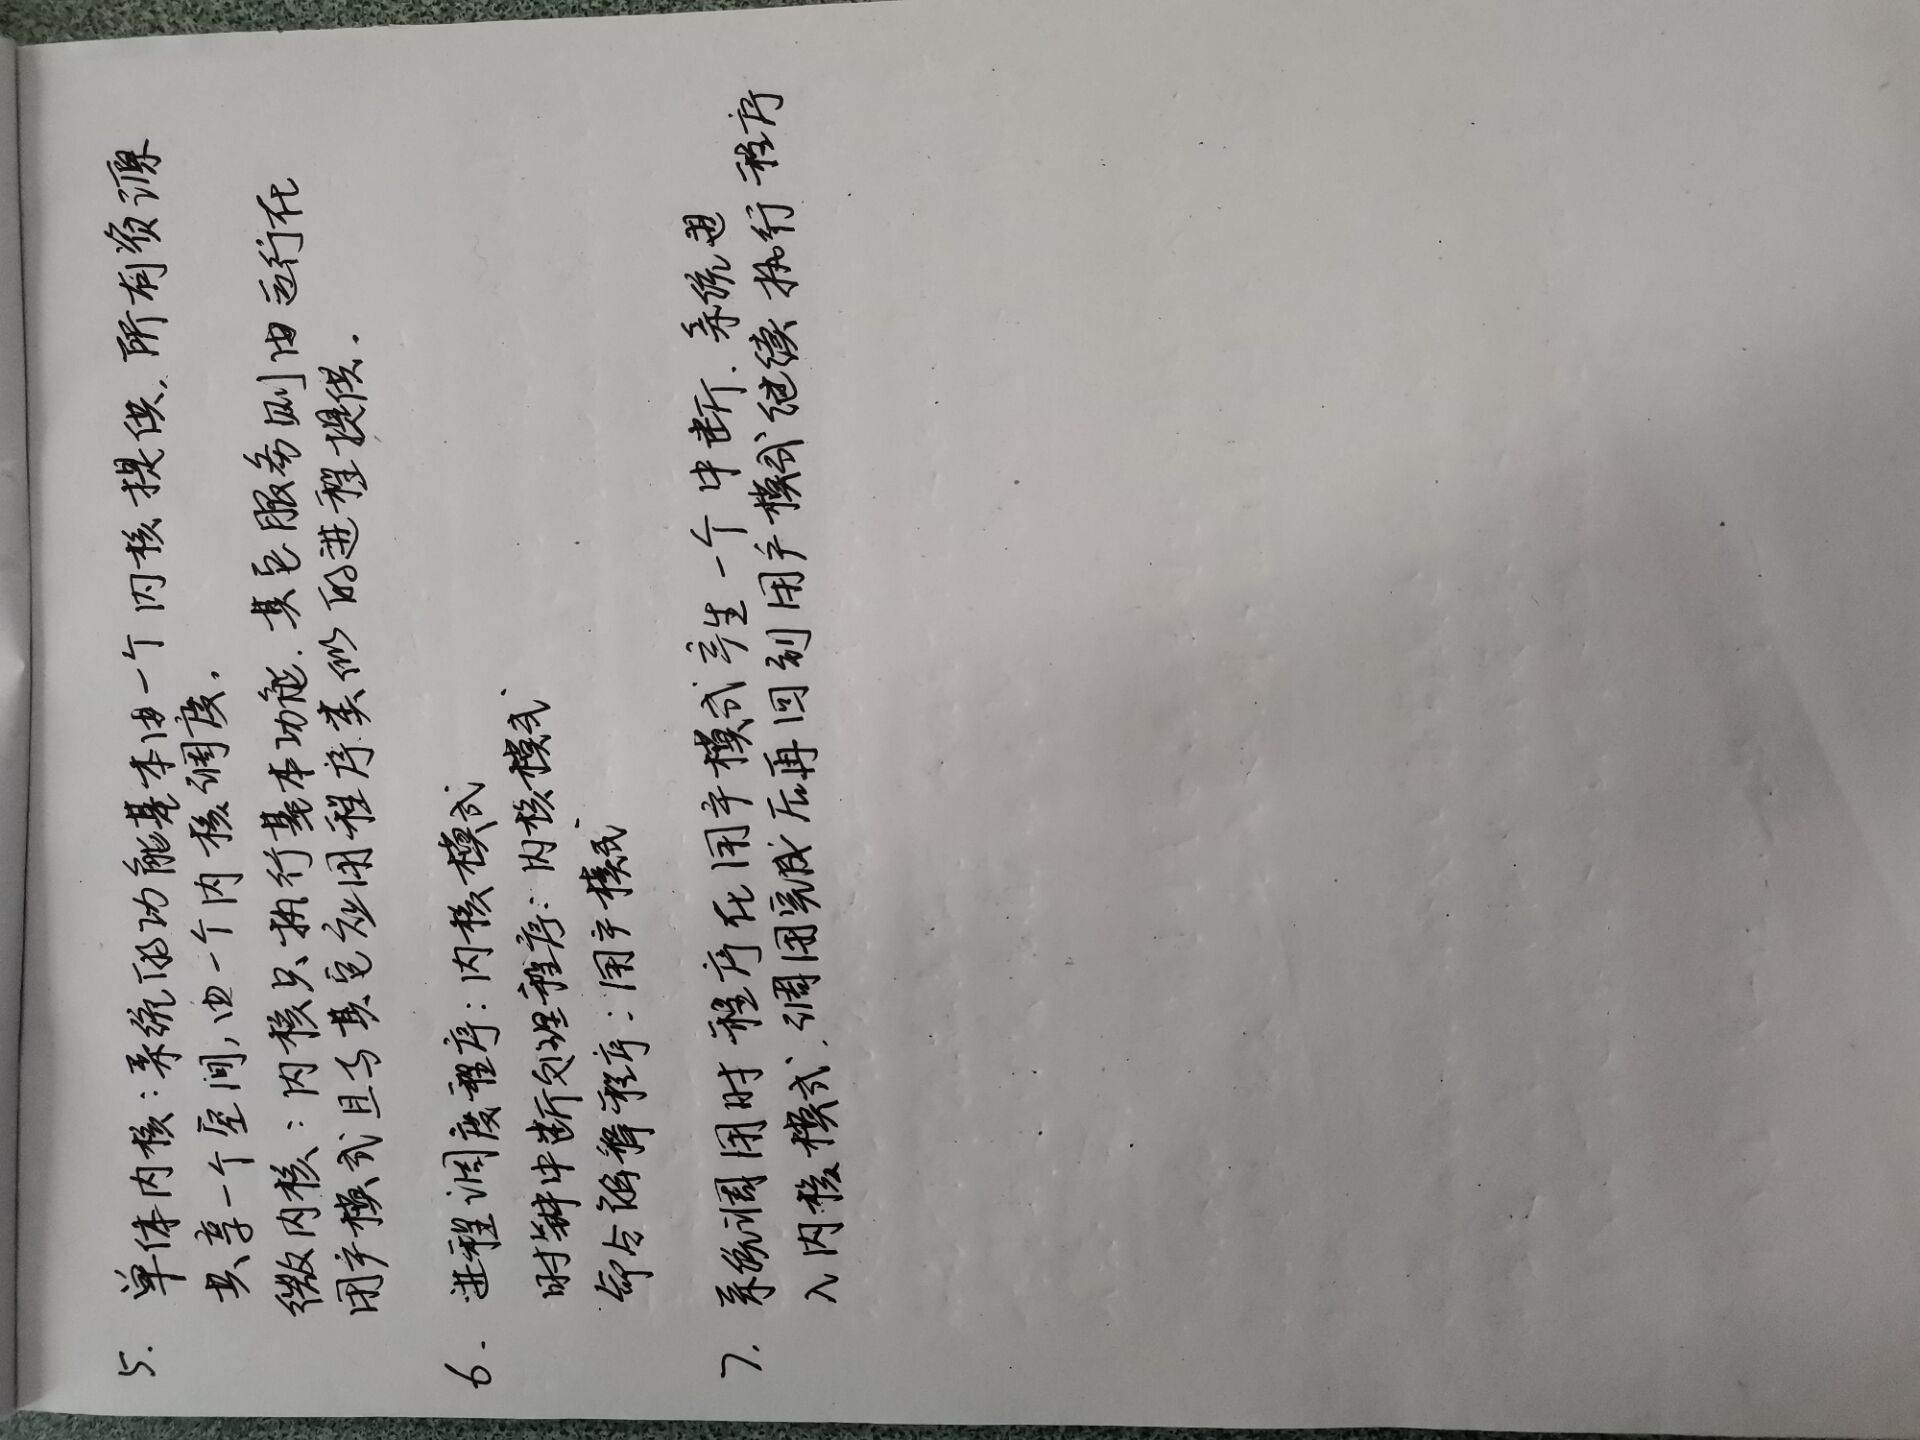 5. 单体内核：系统的功能基本由一个内核提供，所有资源
共享一个空间，由一个内核调度。
微内核：内核只执行基本功能，其它服务则由运行在
用户模式且与其它应用程序类似的进程提供。
6. 进程调度程序：内核模式
时钟中断处理程序：内核模式
命令解释程序：用户模式
7. 系统调用时程序在用户模式产生一个中断，系统进
入内核模式，调用完成后再回到用户模式继续执行程序